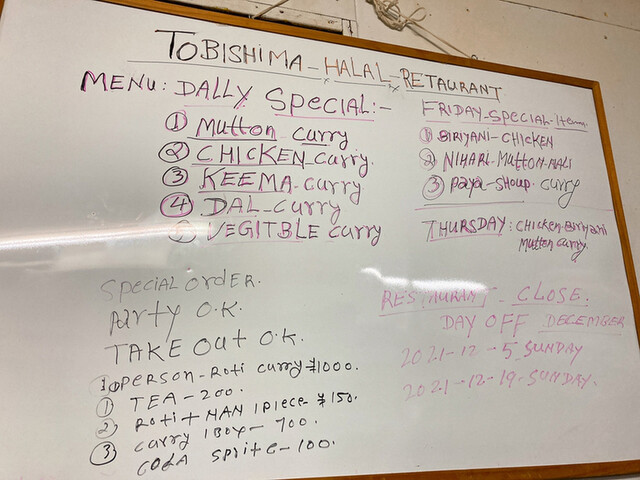 TOBISHIMA-HALAL-RETAURANT
MENU: DALLY SPECIAL:-
① Mutton curry
② CHICKEN curry.
③ KEEMA-curry
④ DAL-curry
VEGITBLE curry
FRIDAY-SPECIAL-Item
① BIRIYANI-CHICKEN
② NIHARI-MUTTON-
③ PAYA-SHOUP. curry
THURSDAY: CHICKEN-Biryani
Mutton curry
SPECIAL ORDER.
PARTY O.K.
TAKE OUT O.K.
1 PERSON-Roti curry ¥1000.
① TEA-200.
② ROTI + NAN 1 PIECE-¥150.
③ CURRY 1 BOX-700.
COLA SPRITE-100.
RESTAURANT CLOSE.
DAY OFF DECEMBER
2021-12-5 SUNDAY
2021-12-19-SUNDAY.